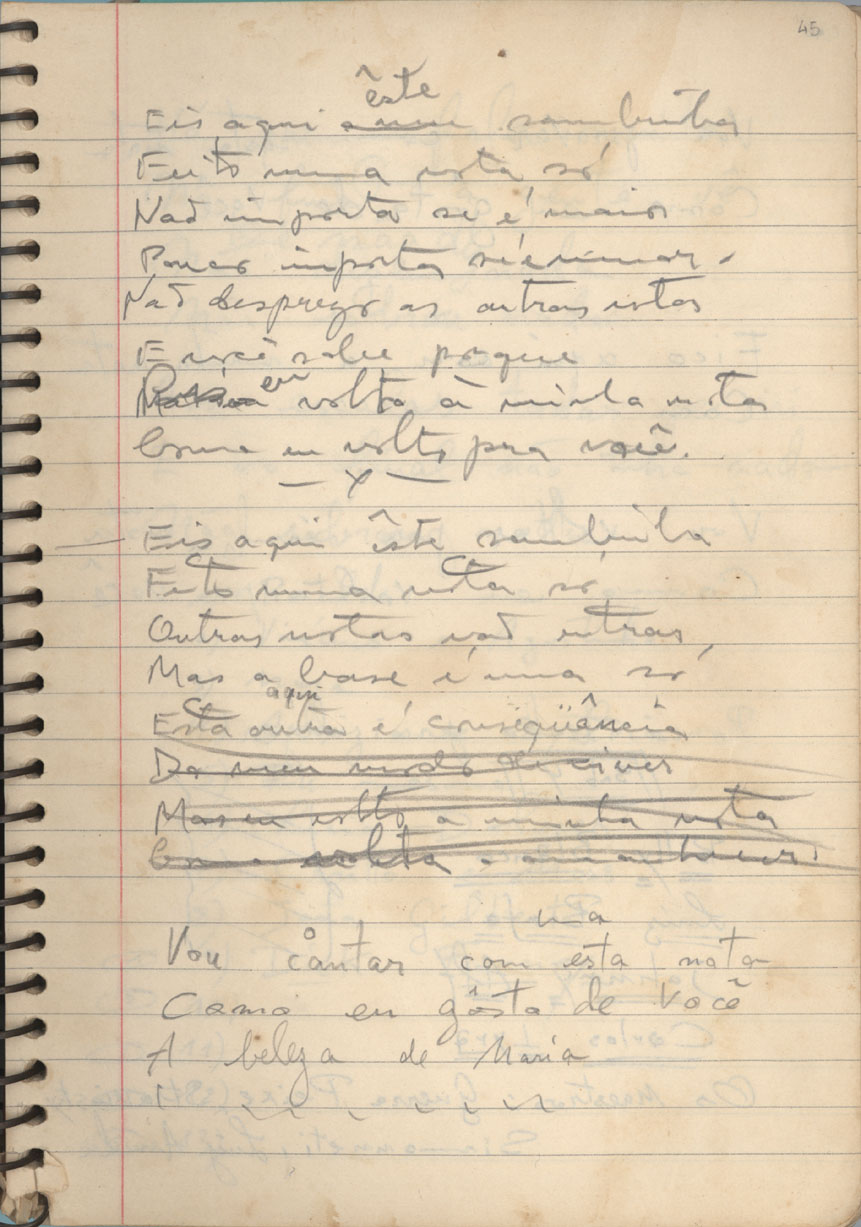 45
êste
Eis aqui sambinha
Feito numa nota só
Não importa se é maior
Pouco importa si é menor.
Não desprezo as outras notas
E você sabe porque
eu volto à minha nota
Como eu volto pra você.
— x —
— Eis aqui êste sambinha
Feito numa nota só
Outras notas vão entrar,
Mas a base é uma só
aqui
Esta outra é conseqüência
Do meu modo de viver
Mas eu volto a minha nota
Como amanhecer
na
Vou cantar com esta nota
Como eu gôsto de você
A beleza de Maria